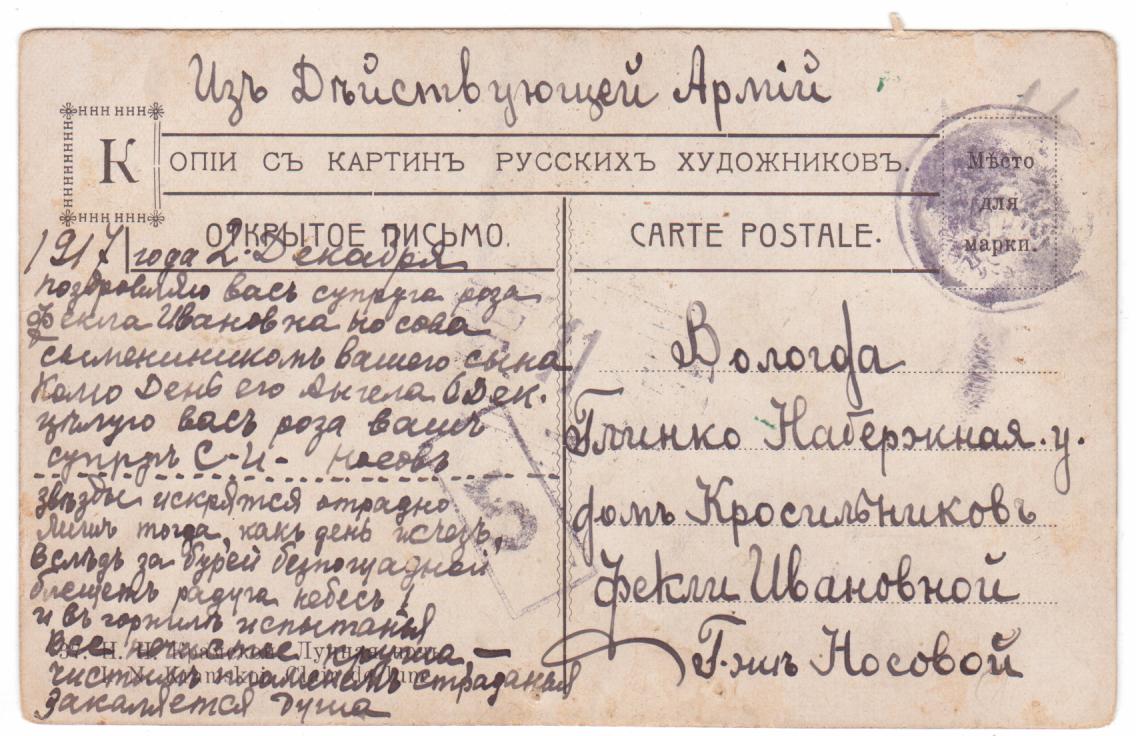 Изъ Дѣйствующей Армій
КОПІИ СЪ КАРТИНЪ РУССКИХЪ ХУДОЖНИКОВЪ.
Мѣсто
для
марки.
ОТКРЫТОЕ ПИСЬМО.
CARTE POSTALE.
1917 года 2. Декабря
поздровляю васъ супруга роза
Фекла Ивановна Носова
сымениникомъ вашего сына
Колю День его Ангела 6 Дек.
цѣлую васъ роза вашъ
супругъ С-И- Носовъ
звѣзбы искрятся отрадно
лишъ тогда, какъ день исчезъ,
вслѣдъ за бурей безпощадной
блещетъ радуга небесъ!
и въ горнилѣ испытанья
все
чистымъ пламенемъ страданья
закаляется душа
Н. Н. Крамской. Лунная ночь.
Вологда
Глинко Набержная. у.
домъ Кросильниковъ
Фекли Ивановной
Г-жѣ Носовой
5